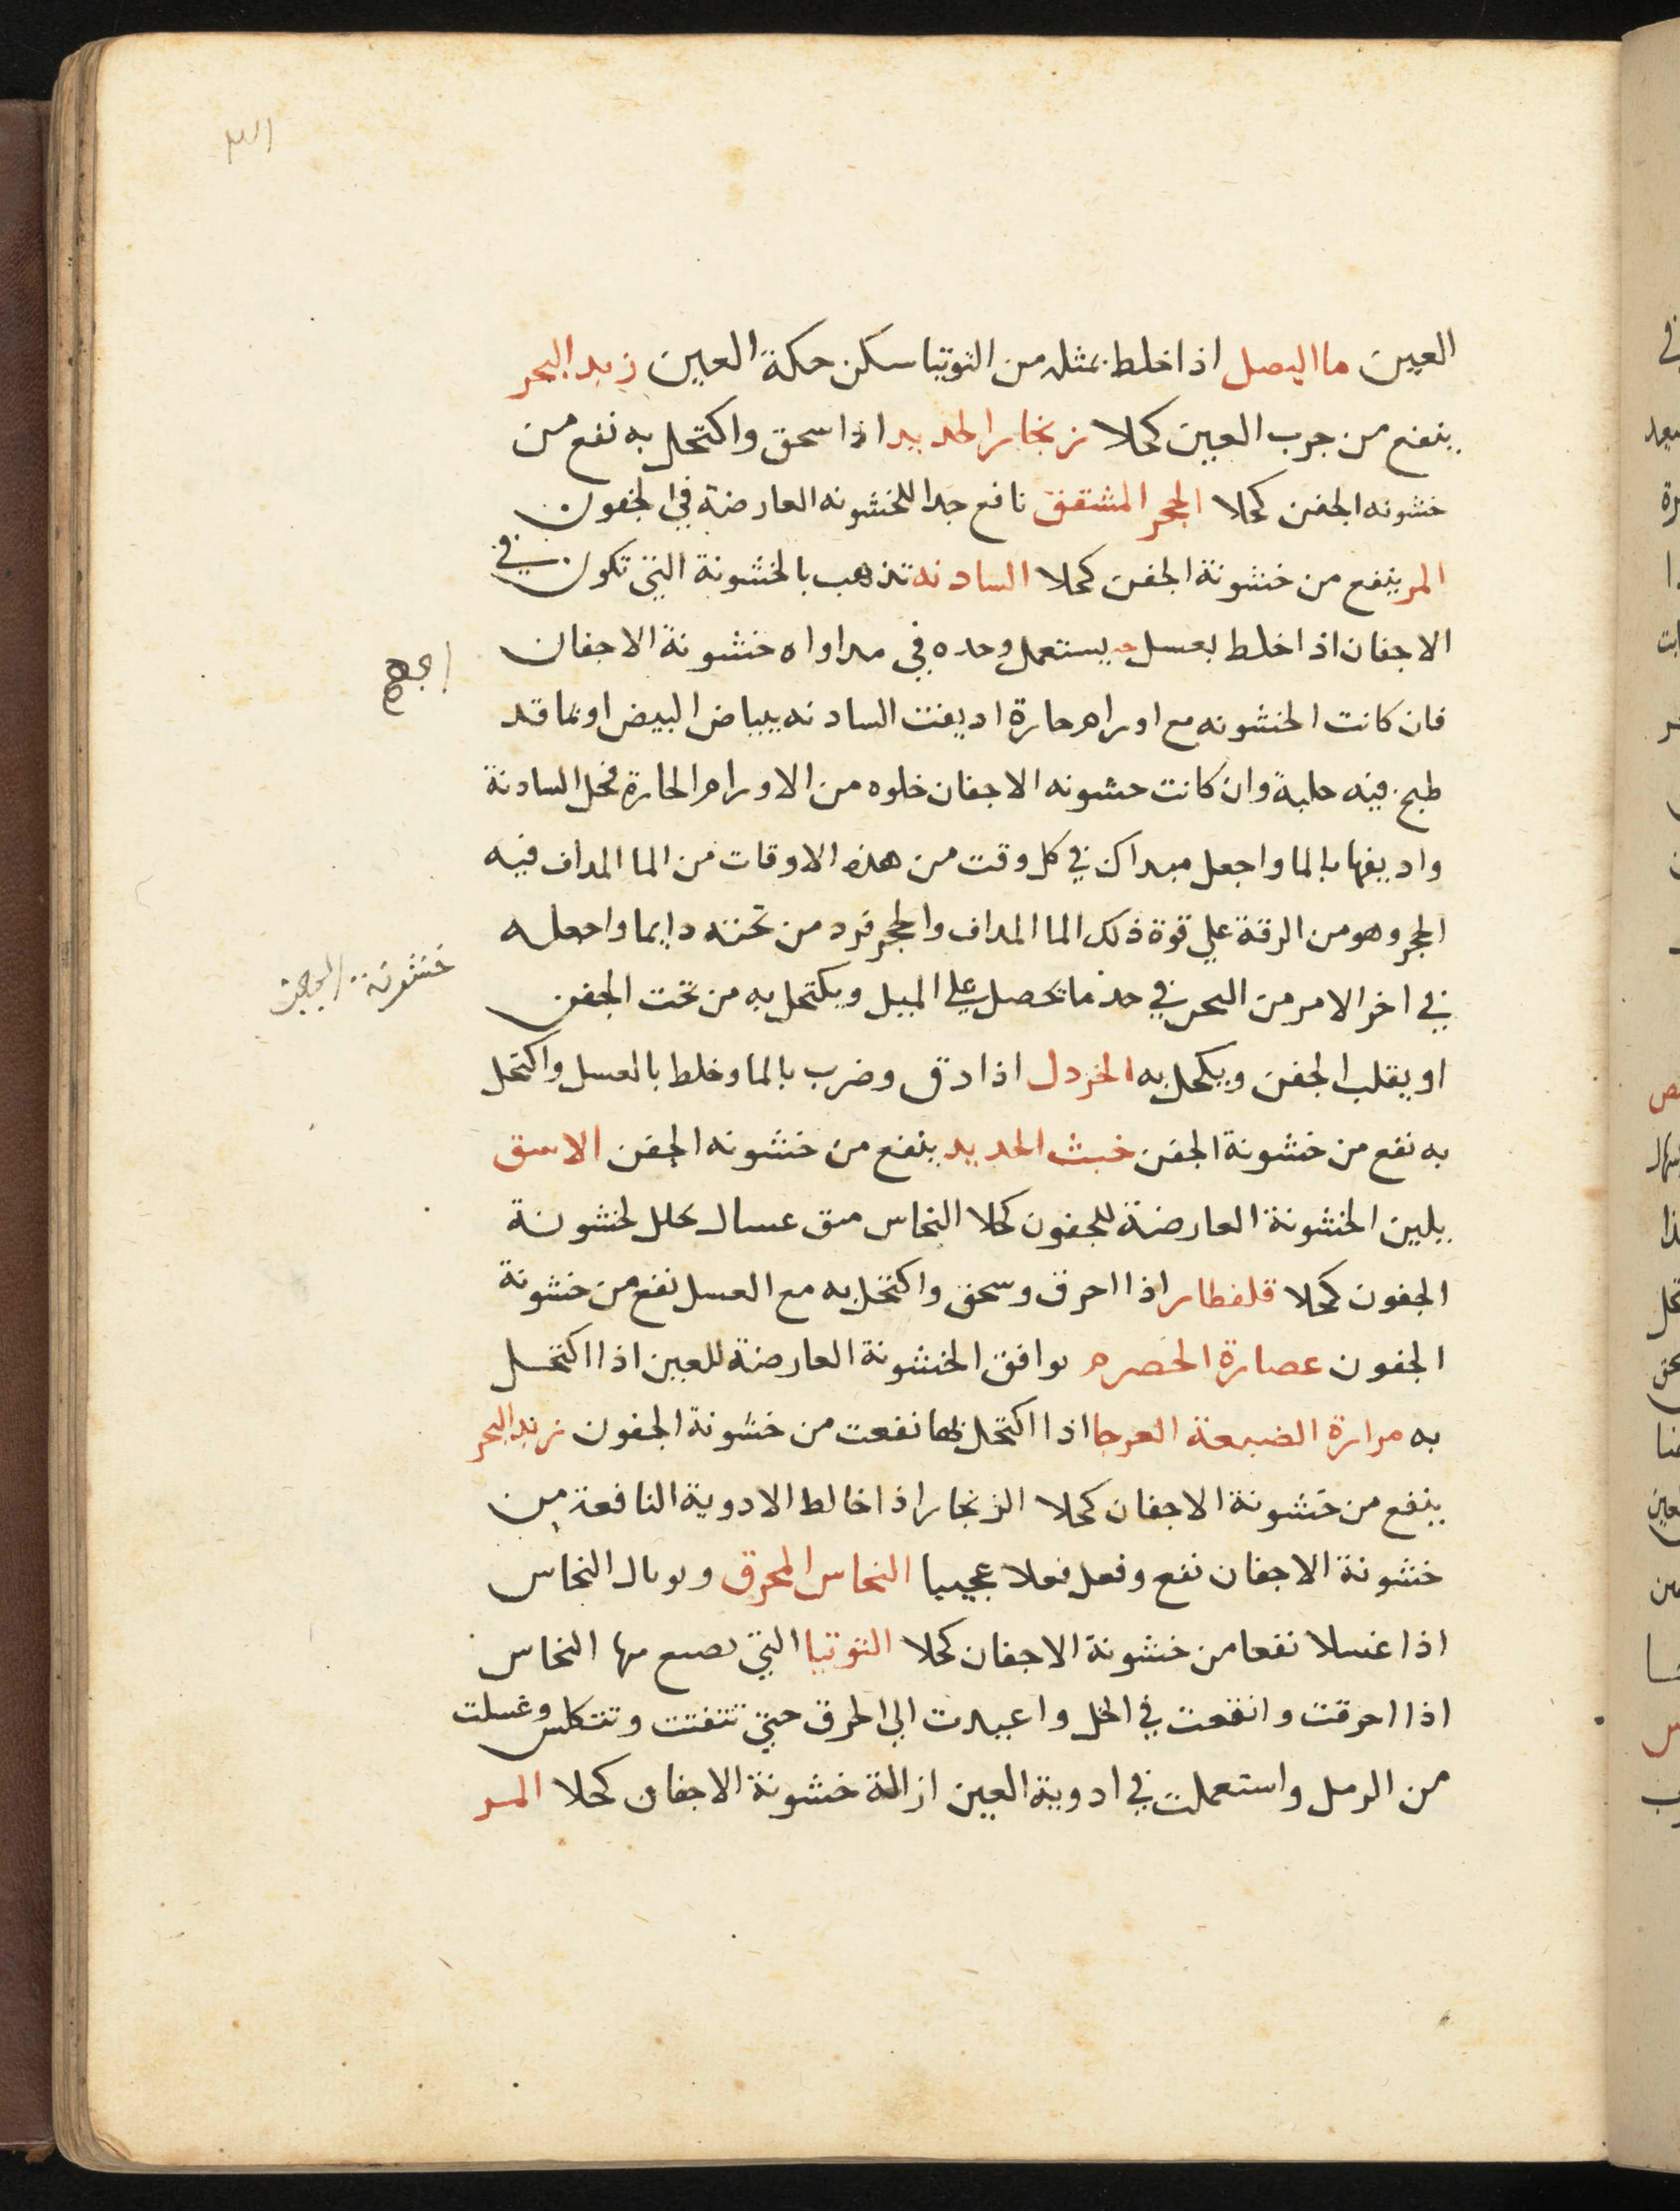 العين ما البصل اذا خلط بمثله من التوتيا سكن حكة العين زبد البحر
ينفع من جرب العين كحلا زنجار الحديد اذا سحق واكتحل به نفع من
خشونه الجفن كحلا الحجر المشقق نافع جدا للخشونه العارضة في الجفون
المر ينفع من خشونة الجفن كحلا السادنه تذهب بالخشونة التي تكون في
الاجفان اذا خلط بعسل يستعمل وحده في مداواه خشونة الاجفان
فان كانت الخشونه مع اورام حارة اديفت السادنه ببياض البيض او بما قد
طبخ فيه حلبة وان كانت خشونه الاجفان خلوه من الاورام الحارة فحل السادنة
واديفها بالما واجعل مبداك في كل وقت من هذه الاوقات من الما المداف فيه
الحجر وهو من الرقة علي قوة ذلك الما المداف والحجر فزد من تخنه دايما واجعله
في اخر الامر من في حد ما تحصل علي الميل ويكتحل به من تحت الجفن
او يقلب الجفن ويكحل به الخردل اذا دق وضرب بالما وخلط بالعسل واكتحل
به نفع من خشونة الجفن خبث الحديد ينفع من خشونه الجفن الاسق
يلين الخشونة العارضة للجفون كحلا النحاس لخشونة
الجفون كحلا قلقطار اذا احرق وسحق واكتحل به مع العسل نفع من خشونة
الجفون عصارة الحصرم توافق الخشونة العارضة للعين اذا اكتحل
به مرارة الضبعة العرجا اذا اكتحل بها نفعت من خشونة الجفون زبد البحر
ينفع من خشونة الاجفان كحلا الزنجار اذا خالط الادوية النافعة من
خشونة الاجفان نفع وفعل فعلا عجيبا النحاس المحرق وتوبال النحاس
اذا غسلا نفعا من خشونة الاجفان كحلا التوتيا التي يصنع منها النحاس
اذا احرقت وانقعت في الخل واعيدت الي الحرق حتي تتفتت وتتكلس وغسلت
من الرمل واستعملت في ادوية العين ازالة خشونة الاجفان كحلا المر
خشونة